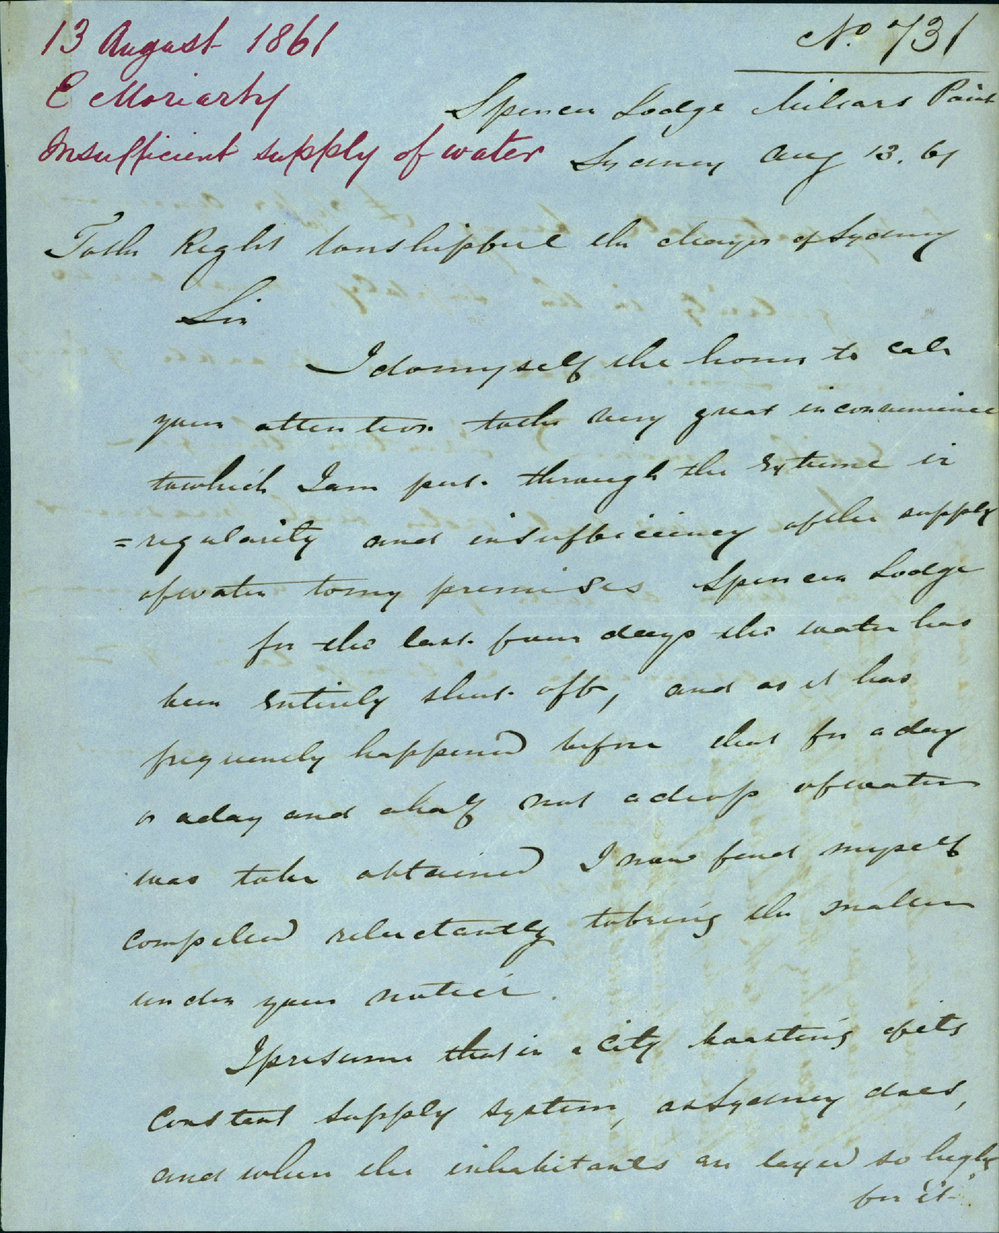 13 August 1861
E Moriarty
Insufficient supply of water
No. 731
Spencer Lodge Milsars Point
Sydney Aug 13. 61
To the Right Worshipful the Mayor of Sydney
Sir
I do myself the honor to call
your attention to the very great inconvenience
to which I am put through the extreme ir
=regularity and insufficiency of the supply
of water to my premises Spencer Lodge
for the last four days the water has
been entirely shut off, and as it has
frequently happened before that for a day
or a day and a half not a drop of water
was to be obtained I now find myself
compelled reluctantly to bring the matter
under your notice.
I presume that in a city boasting of its
constant supply system, as Sydney does,
and when the inhabitants are taxed so highly
for "it".